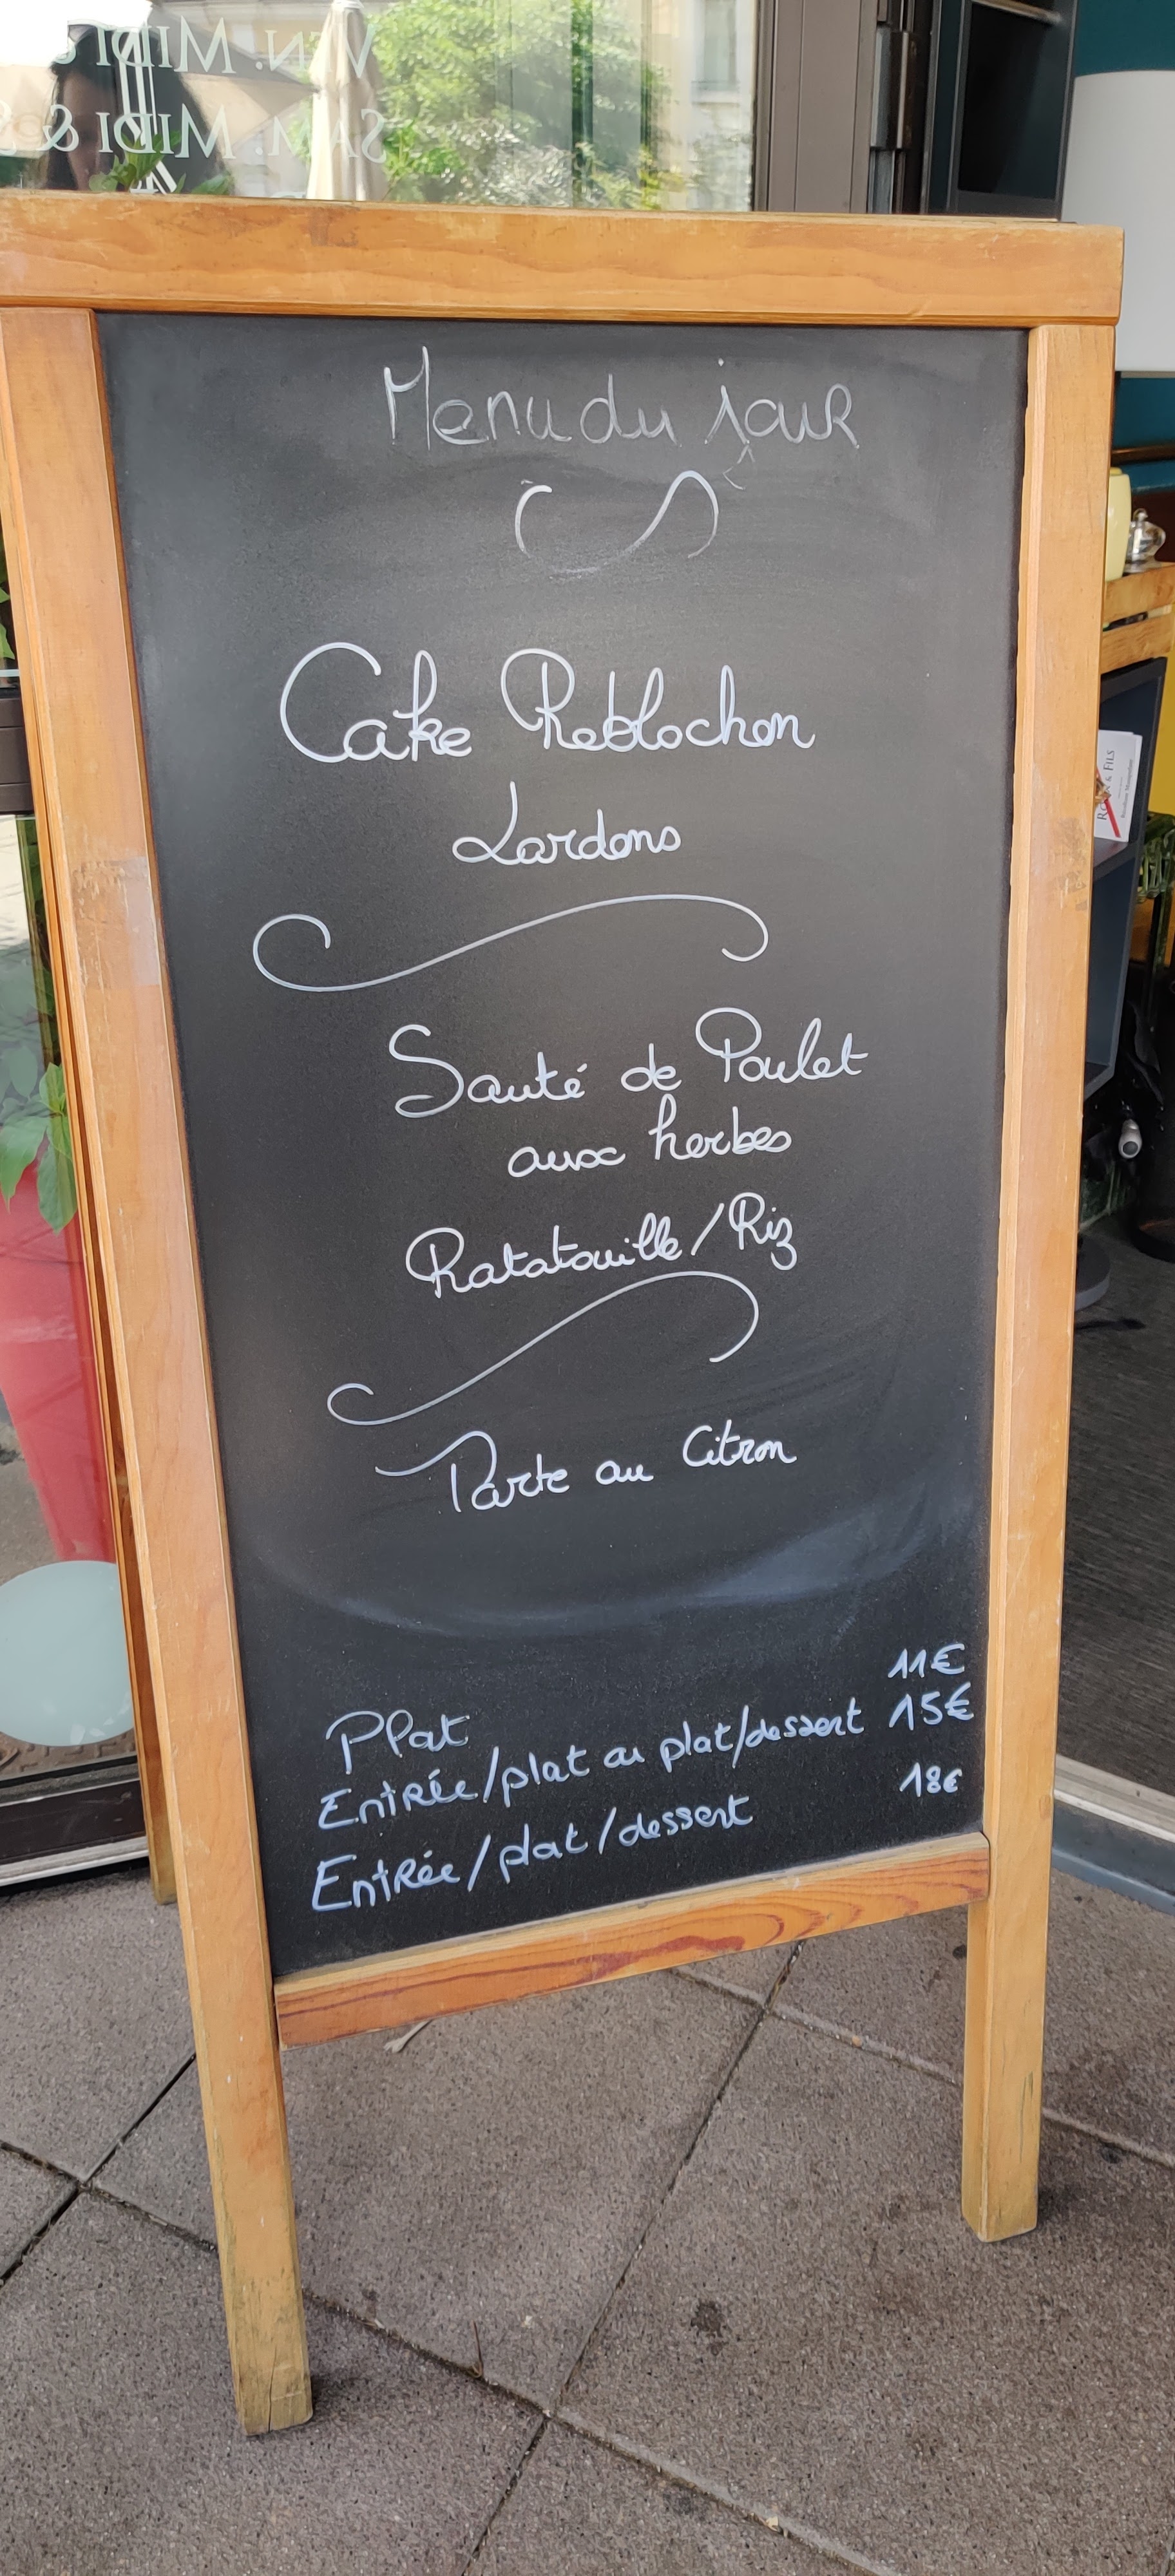 VEN. MIDI &
SAM. MIDI & S
Menu du jour
Cake Reblochon
Lardons
Sauté de Poulet
aux herbes
Ratatouille/Riz
Tarte au Citron
Plat 11€
Entrée/plat ou plat/dessert 15€
Entrée/plat/dessert 18€
& FILS